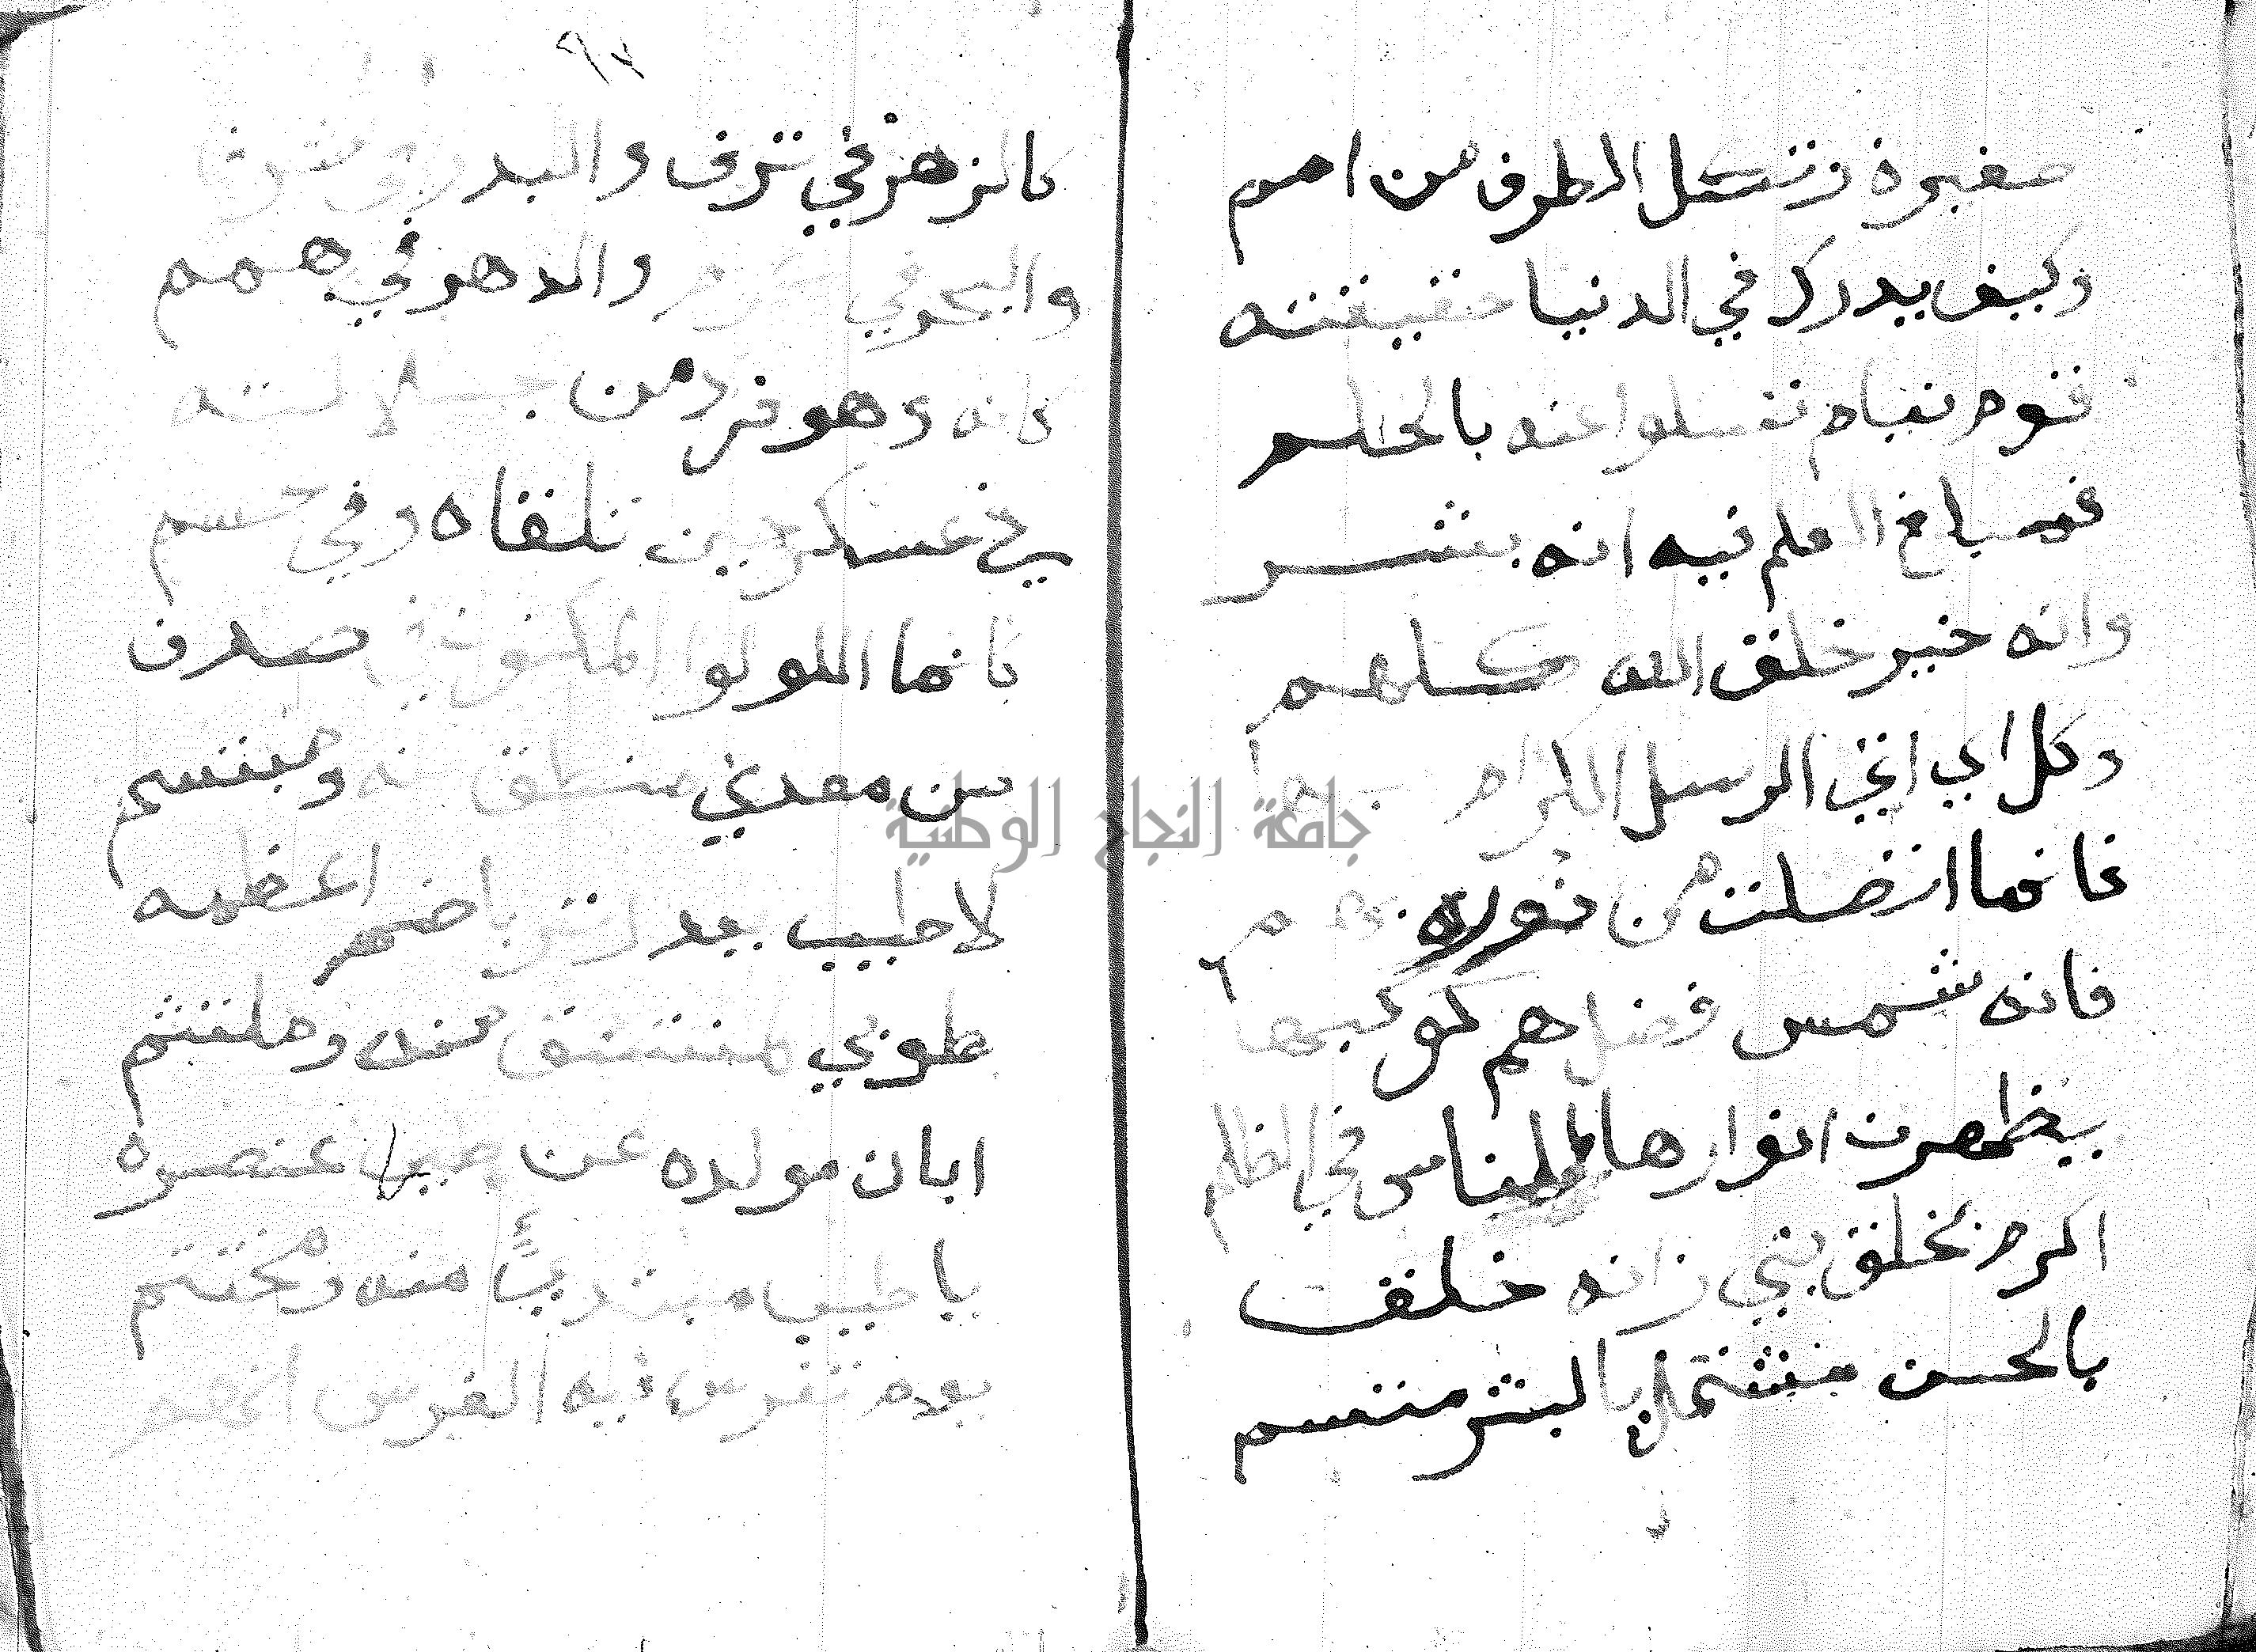 صغيرة وتكل الطرف من امم
وكيف يدرك في الدنيا حقيقته
قوم نيام تسلوا عنه بالحلم
فمبلغ العلم فيه انه بشر
وانه خير خلق الله كلهم
وكل اي اتي الرسل الكرام بها
فانما اتصلت من نوره بهم
فانه شمس فضل هم كوكبها
يظهرن انوارها للناس في الظلم
اكرم بخلق نبي زانه خلق
بالحسن مشتمل بالبشر متسم
٩٧
كالزهر في ترف والبدر في شرف
والبحر في كرم والدهر في همم
كانه وهو فرد من جلالته
في عسكر حين تلقاه وفي حشم
كانما اللولوا المكنون في صدف
من معدني منطق منه ومبتسم
لا طيب يعدل تربا ضم اعظمه
طوبي لمنتشق منه وملتثم
ابان مولده عن طيب عنصره
يا طيب مبتدئ منه ومختتم
يوم تفرس فيه الفرس انهم
جامعة النجاح الوطنية